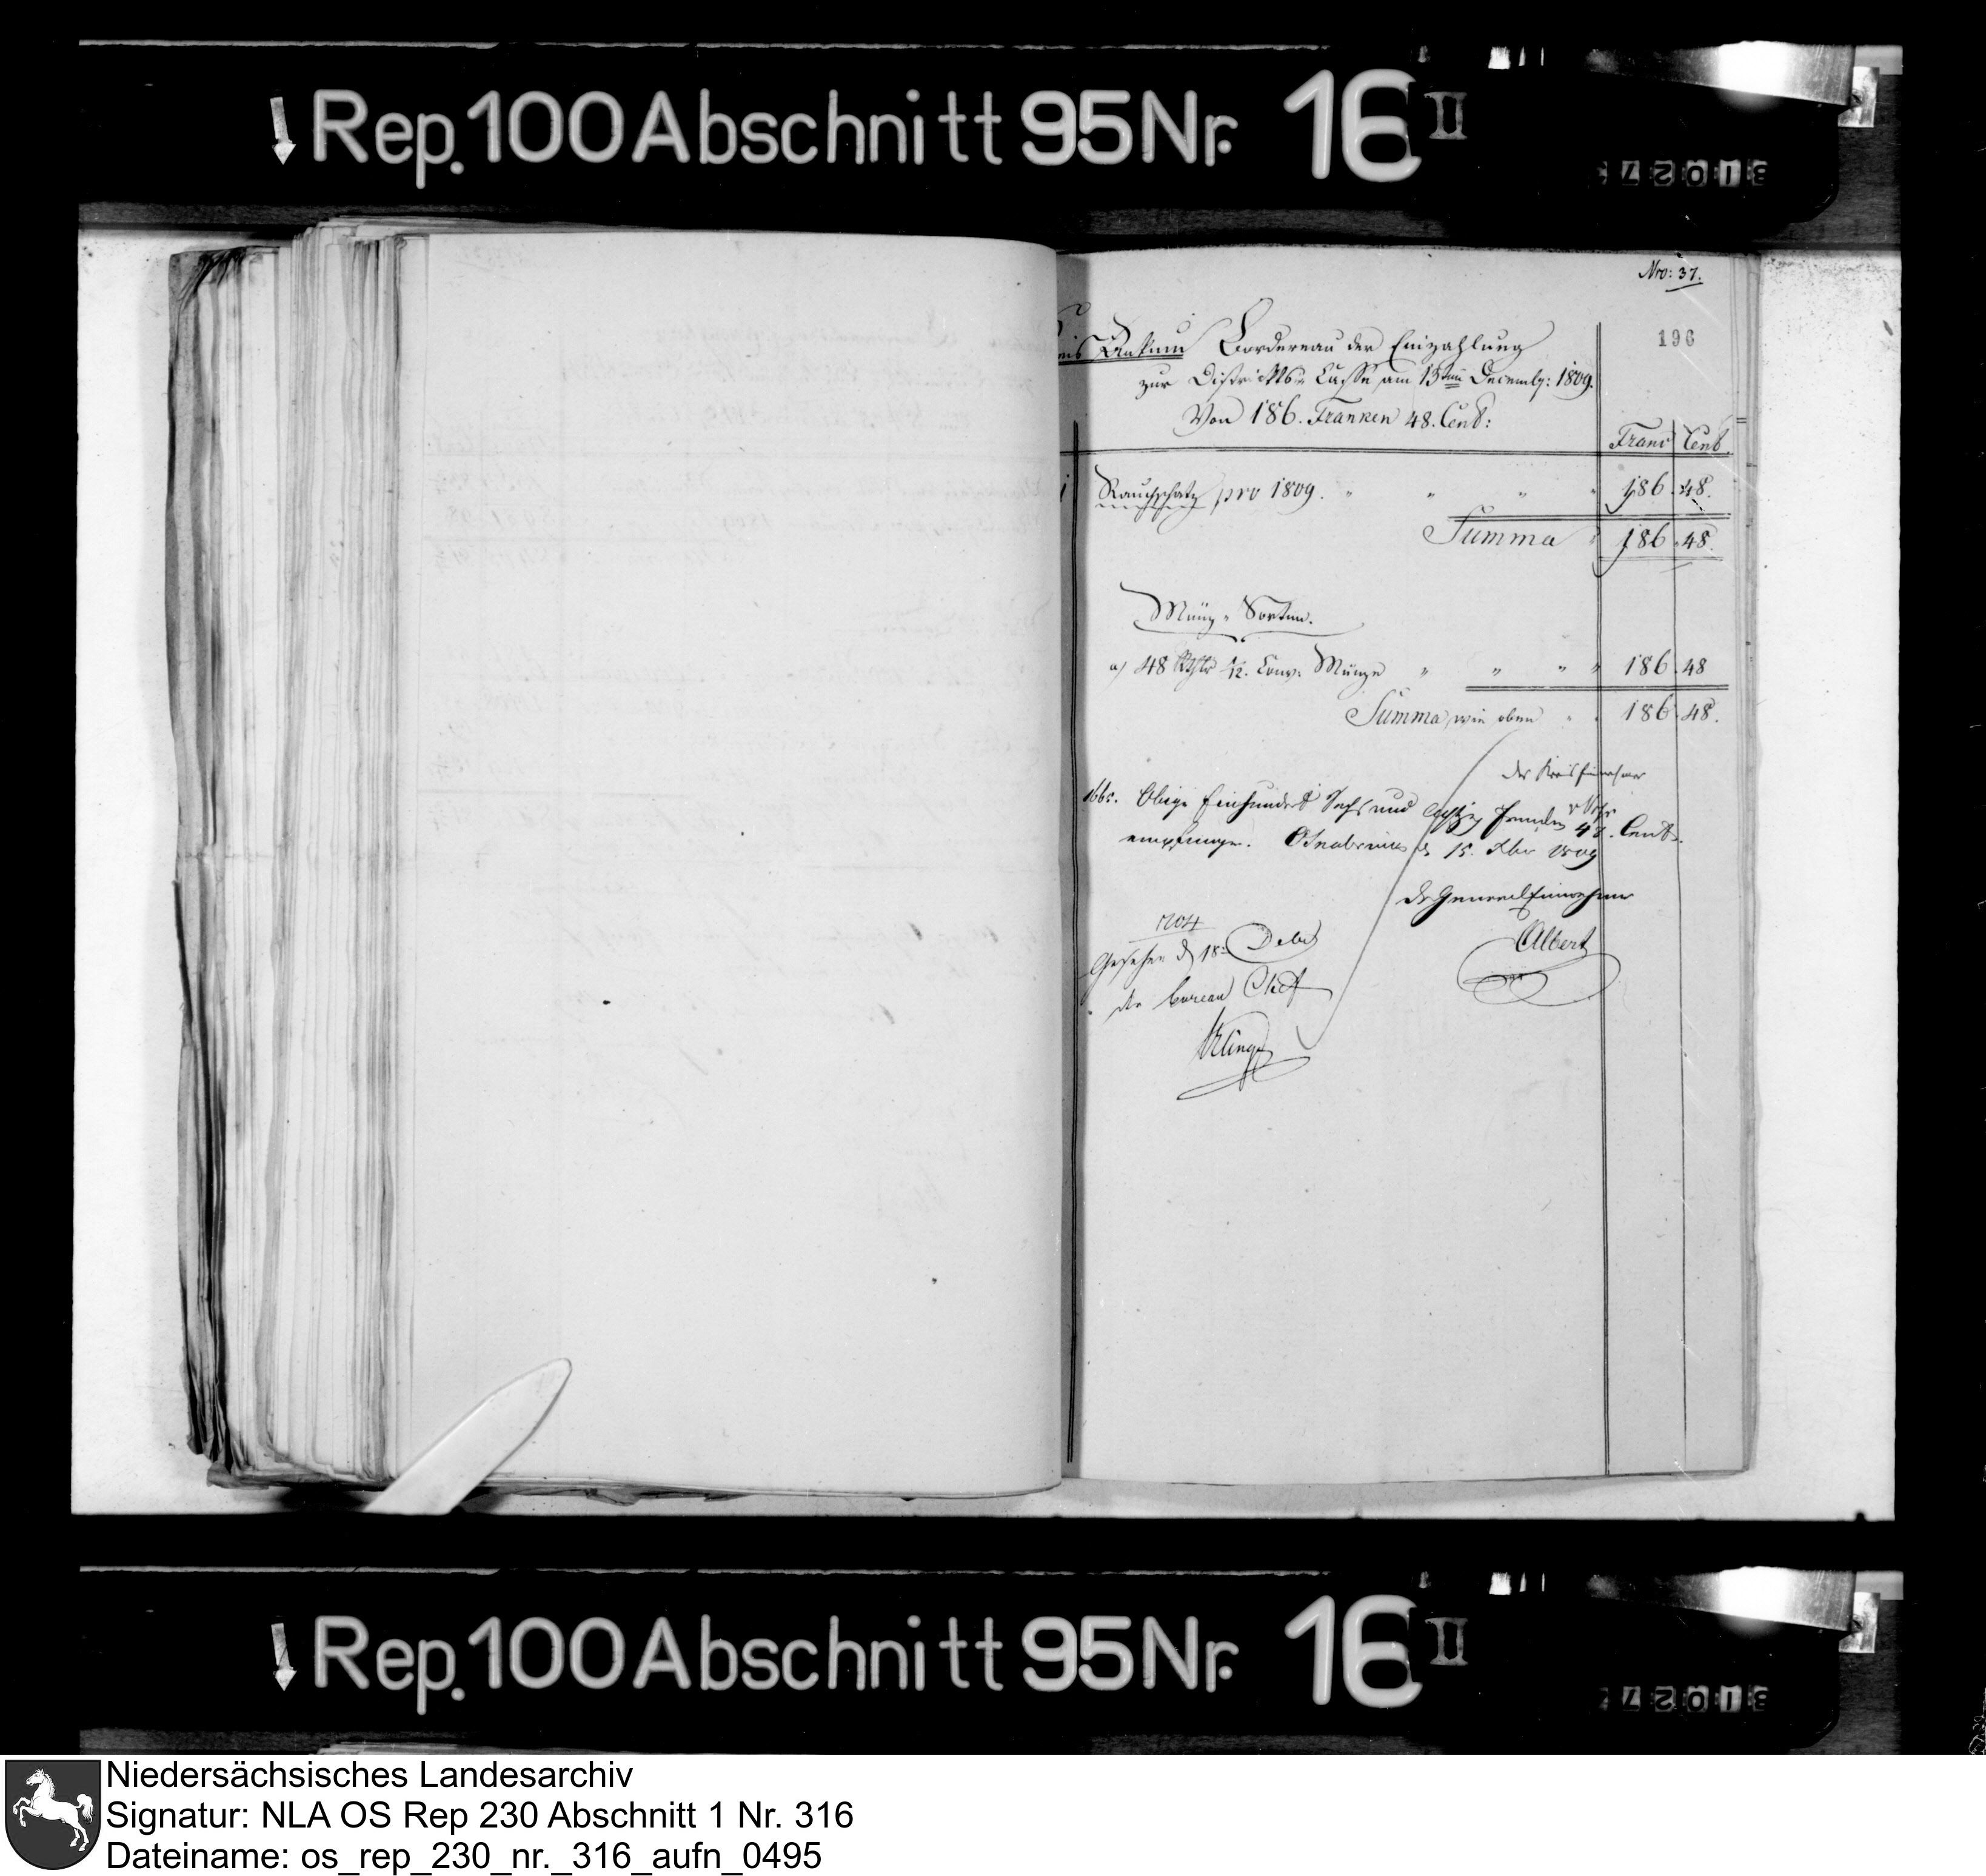 Rep. 100 Abschnitt 95 Nr. 16 II
Nro: 37.
196
Ankum Bordereau der Einzahlung
zur Districkts-Casse am 15ten Decembr: 1809.
Von 186. Franken 48. Cent:
Franc Cent.
1 Rauchschatz pro 1809. " " " " 186. 48.
Summa " 186. 48.
Münz-Sorten.
a) 48 Rthlr 1/12. Conv: Münze " " " " 186. 48
Summa wie oben " " 186. 48.
der Kreiseinnehmer
Obige Einhundert Sechs und Achtzig Franken 48. Cent.
empfangen. Osnabrück d 15. Xbr 1809
der General Einnehmer
Albert
1204
Gesehen d 18t Debr
der Bureau Chef
Klinge
Rep. 100 Abschnitt 95 Nr. 16 II
Niedersächsisches Landesarchiv
Signatur: NLA OS Rep 230 Abschnitt 1 Nr. 316
Dateiname: os_rep_230_nr._316_aufn_0495